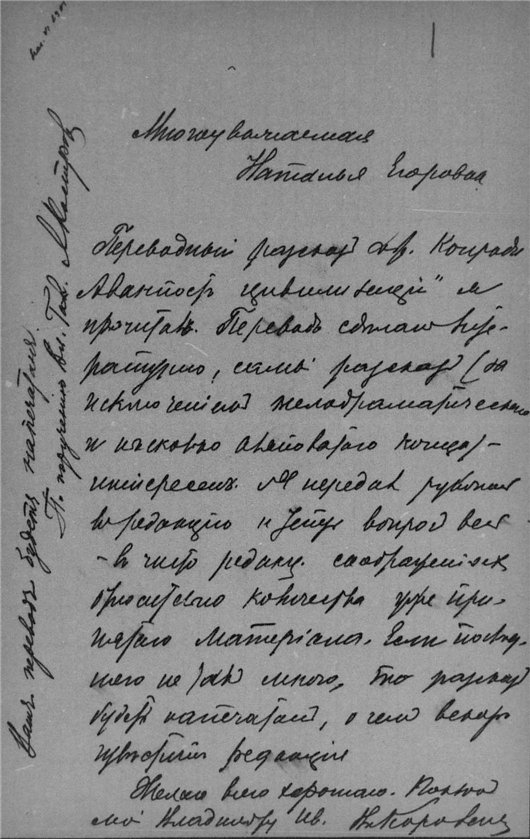 Многоуважаемая
Наталья Егоровна
Переводный разсказ Конрада
Аванпост цивилизаціи" я
прочиталъ. Переводъ сдѣланъ
, самый разсказъ (за
исключеніемъ мелодраматическаго
и нѣсколько конца) -
интересенъ. Я передал рукопись
в редакцію и теперь вопрос весь
- в чисто редакц. соображеніях
относительно количества уже при-
нятаго матеріала. Если послѣд-
няго не так много, то разсказ
будет напечатан, о чем вскорѣ
известит редакція
Желаю всего хорошаго. Поклон
мой Владиміру Ив. Вл. Короленко
Ваш переводъ будетъ напечатан.
По порученію Вл. Гал.